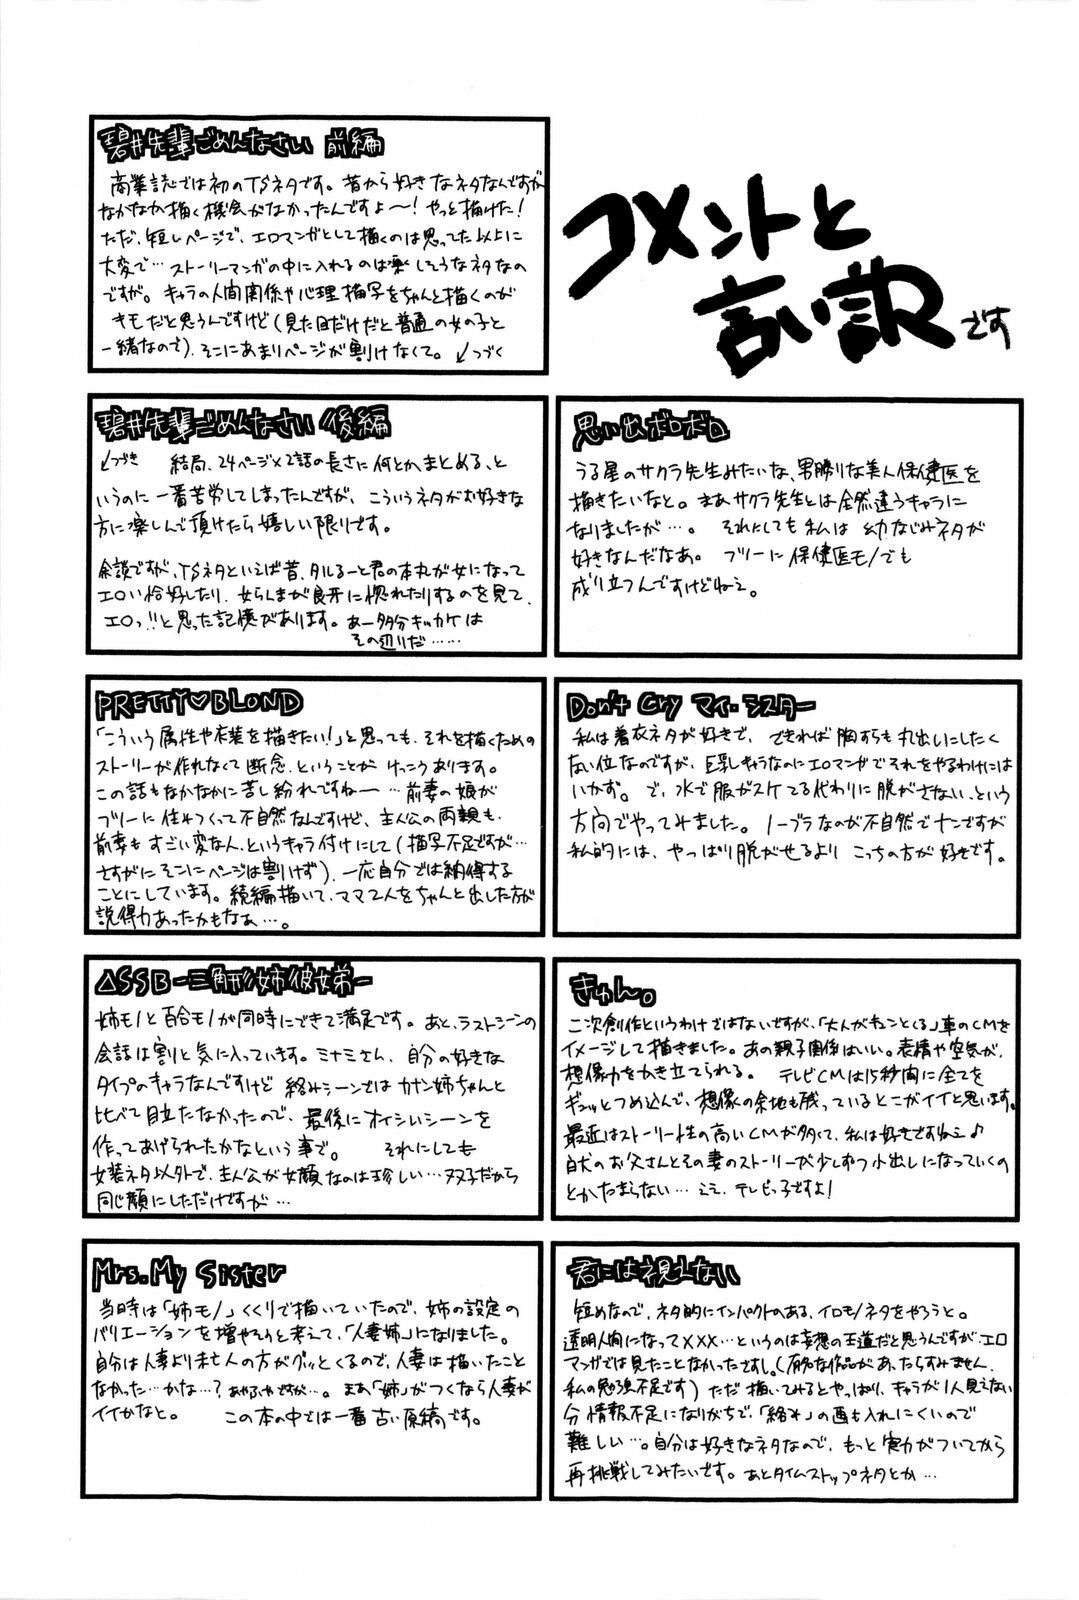 コメントと
言い訳です
碧井先輩ごめんなさい 前編
商業誌では初のTSネタです。昔から好きなネタなんですが
なかなか描く機会がなかったんですよ〜!やっと描けた!
ただ、短いページで、エロマンガとして描くのは思ってた以上に
大変で…ストーリーマンガの中に入れるのは楽しそうなネタなの
ですが。キャラの人間関係や心理描写をちゃんと描くのが
キモだと思うんですけど(見た目だけだと普通の女の子と
一緒なので)、そこにあまりページが割けなくて。↙つづく
碧井先輩ごめんなさい 後編
↙つづき 結局、24ページ×2話の長さに何とかまとめる、と
いうのに一番苦労してしまったんですが、こういうネタがお好きな
方に楽しんで頂けたら嬉しい限りです。
余談ですが、TSネタといえば昔、タルるート君の本丸が女になって
エロい恰好したり、女らんまが良牙に惚れたりするのを見て、
エロっ!!と思った記憶があります。あー多分キッカケは
その辺りだ……
思い出ボロボロ
うる星のサクラ先生みたいな、男勝りな美人保健医を
描きたいなと。まあサクラ先生とは全然違うキャラに
なりましたが…。それにしても私は幼なじみネタが
好きなんだなあ。フツーに保健医モノでも
成り立つんですけどねェ。
PRETTY♡BLOND
「こういう属性や衣装を描きたい!」と思っても、それを描くための
ストーリーが作れなくて断念、ということがけっこうあります。
この話もなかなかに苦し紛れですね〜…前妻の娘が
フツーに住みつくって不自然なんですけど、主人公の両親も、
前妻もすごい変な人、というキャラ付けにして(描写不足ですが…
さすがにそこにページは割けず)、一応自分では納得する
ことにしています。続編描いて、ママ2人をちゃんと出した方が
説得力あったかもなぁ…。
Don't Cry マイ・シスター
私は着衣ネタが好きで、できれば胸すらも丸出しにしたく
ない位なのですが、巨乳キャラなのにエロマンガでそれをやるわけには
いかず。で、水で服がスケてる代わりに脱がさない、という
方向でやってみました。ノーブラなのが不自然でナンですが
私的には、やっぱり脱がせるよりこっちの方が好きです。
△SSB-三角形姉彼妹弟-
姉モノと百合モノが同時にできて満足です。あと、ラストシーンの
会話は割と気に入っています。ミナミさん、自分の好きな
タイプのキャラなんですけど絡みシーンではカナン姉ちゃんと
比べて目立たなかったので、最後にオイシいシーンを
作ってあげられたかなという事で。 それにしても
女装ネタ以外で、主人公が女顔なのは珍しい…双子だから
同じ顔にしただけですが…
きゅん。
二次創作というわけではないですが、「大人がキュンとくる」車のCMを
イメージして描きました。あの親子関係はいい。表情や空気が、
想像力をかき立てられる。 テレビCMは15秒間に全てを
ギュッとつめ込んで、想像の余地も残っているとこがイイと思います。
最近はストーリー性の高いCMが多くて、私は好きですねェ♪
白犬のお父さんとその妻のストーリーが少しずつ小出しになっていくの
とかたまらない…ええ、テレビっ子ですよ!
Mrs.My Sister
当時は「姉モノ」くくりで描いていたので、姉の設定の
バリエーションを増やそうと考えて、「人妻姉」になりました。
自分は人妻より未亡人の方がグッとくるので、人妻は描いたこと
なかった…かな…?あやふやですが…。まあ「姉」がつくなら人妻が
イイかなと。 この本の中では一番古い原稿です。
君には視えない
短めなので、ネタ的にインパクトのある、イロモノネタをやろうと。
透明人間になって×××…というのは妄想の王道だと思うんですが、エロ
マンガでは見たことなかったですし。(有名な作品があったらすみません、
私の勉強不足です)ただ描いてみるとやっぱり、キャラが1人見えない
分情報不足になりがちで、「絡み」の画も入れにくいので
難しい…。自分は好きなネタなので、もっと実力がついてから
再挑戦してみたいです。あとタイムストップネタとか…